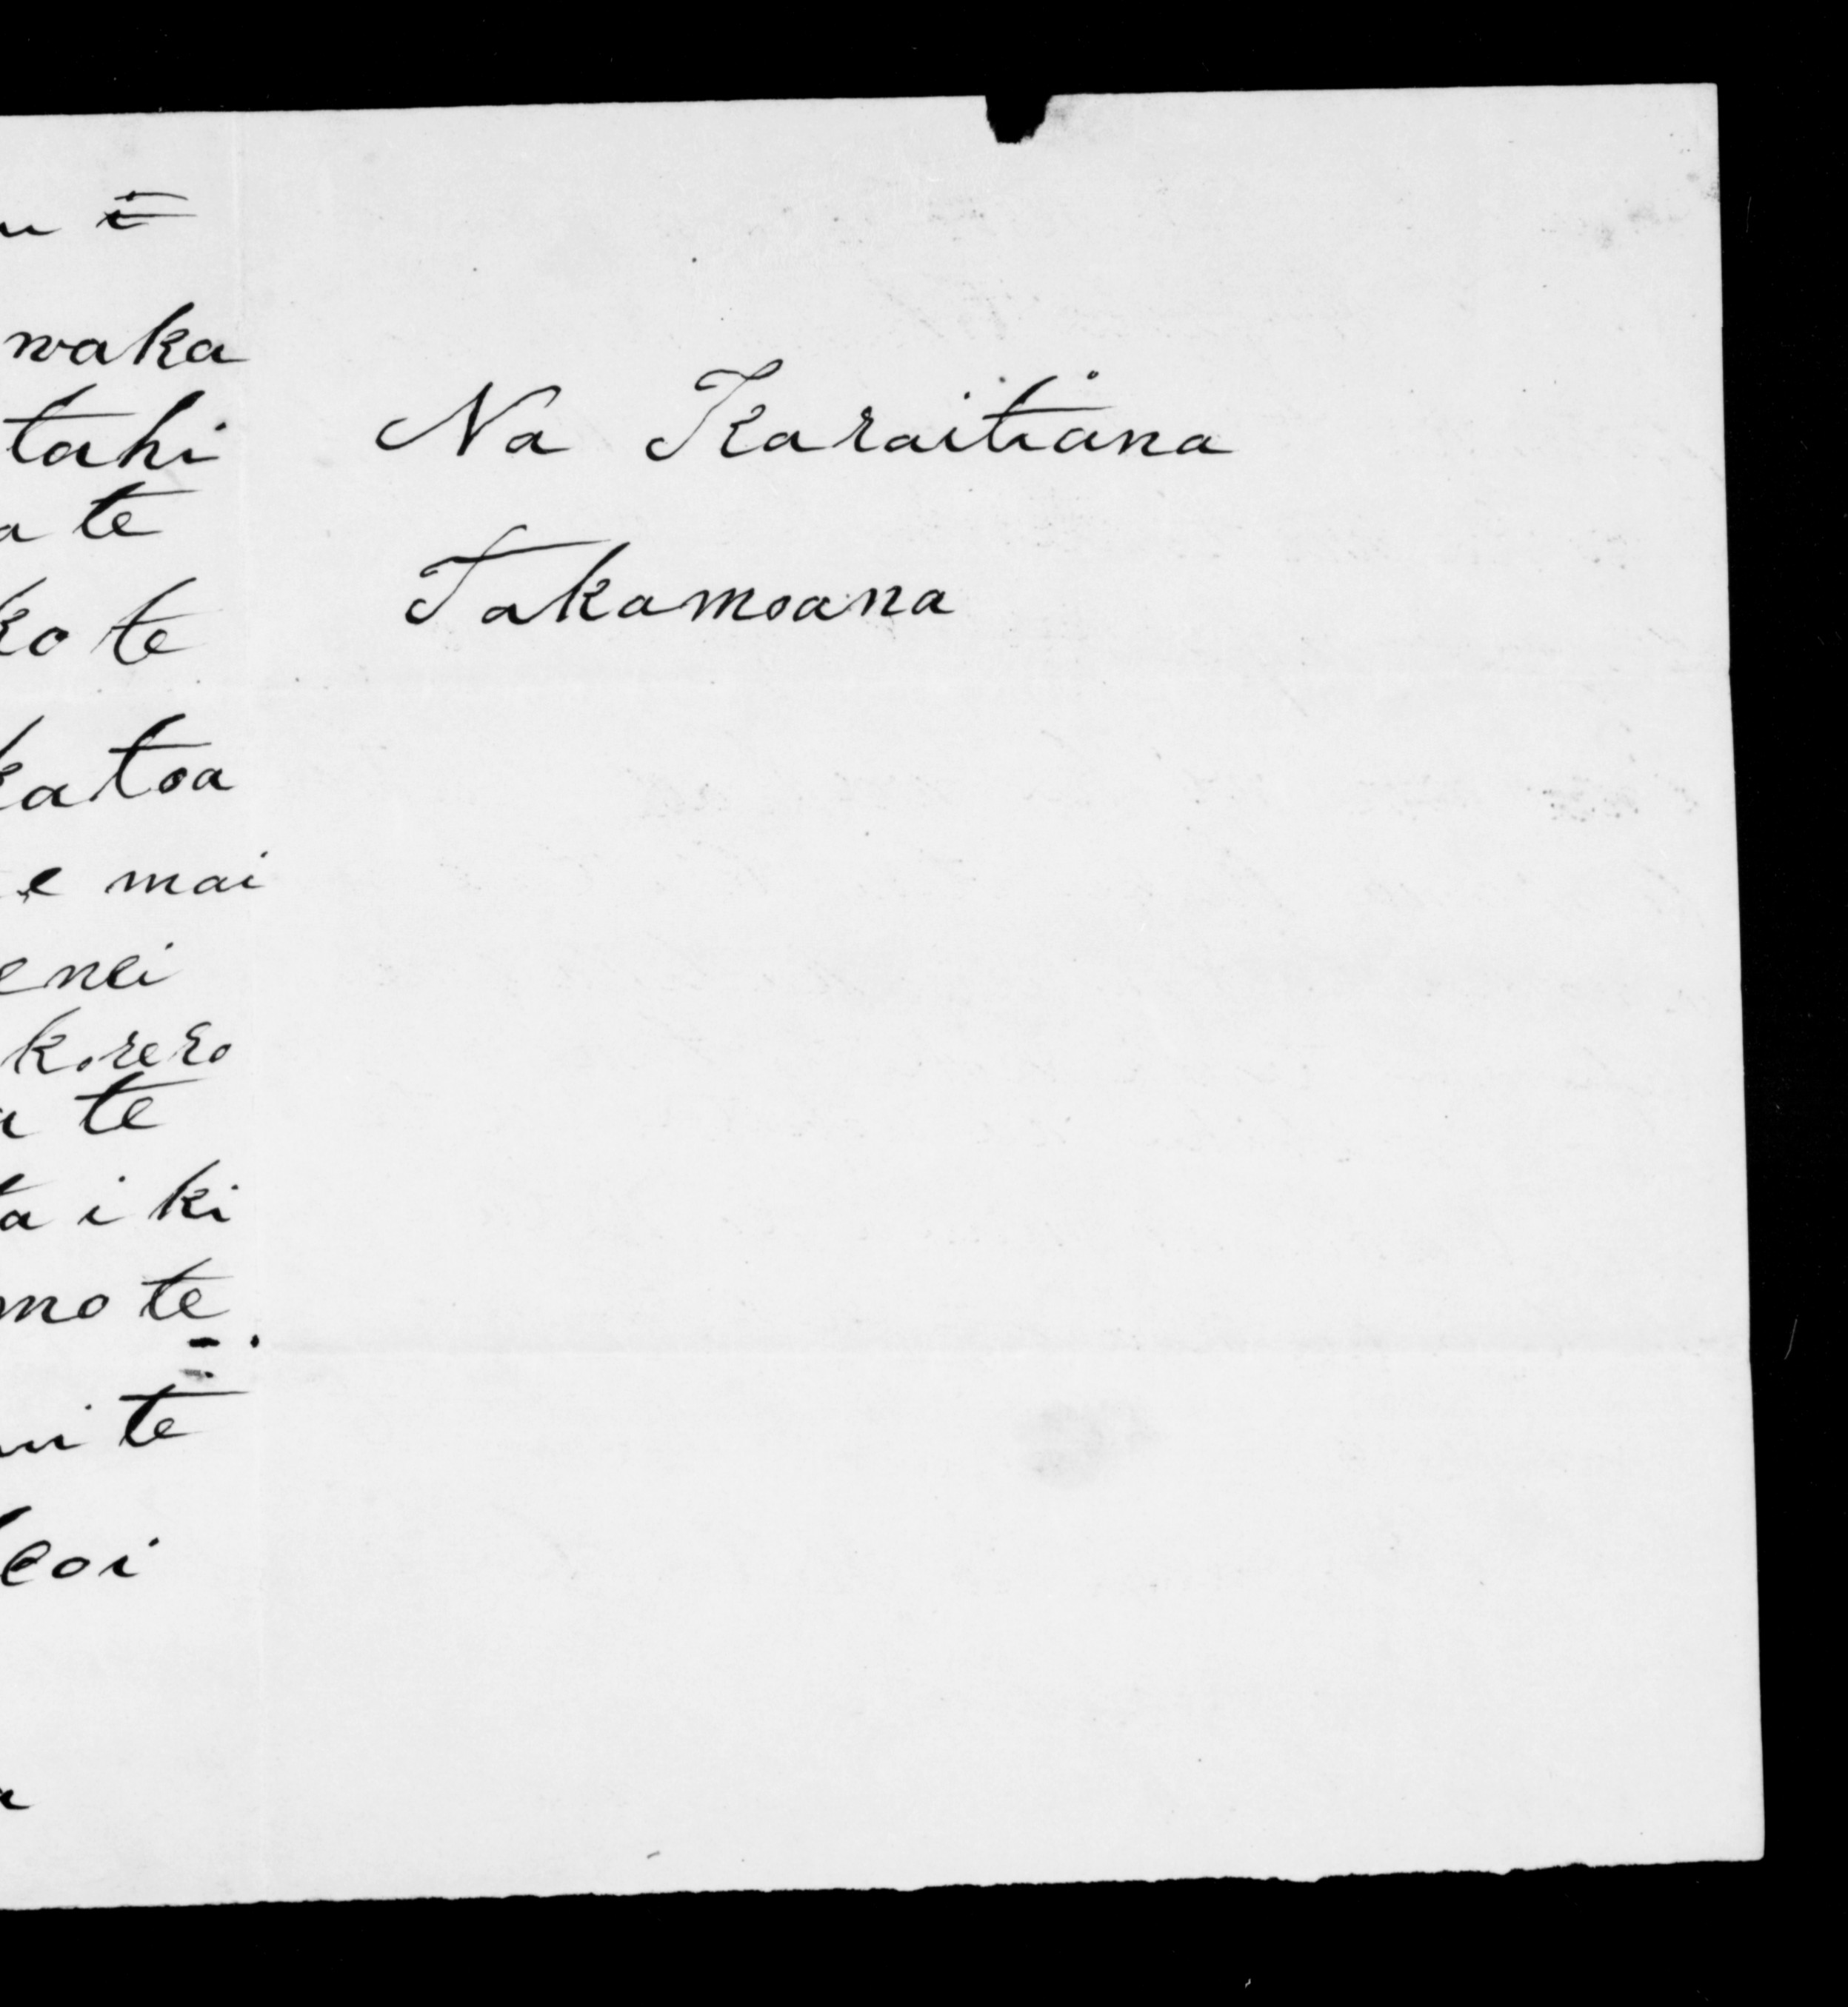 waka
tahi
te
ko te
katoa
e mai
enei
korero
te
i ki
mo te
te
Na Karaitiana
Takamoana